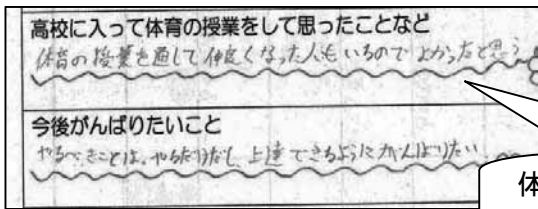 高校に入って体育の授業をして思ったことなど
体育の授業を通して仲良くなった人もいるのでよかったと思う
今後がんばりたいこと
やるべきことは、やるだけだし、上達できるようにがんばりたい
体